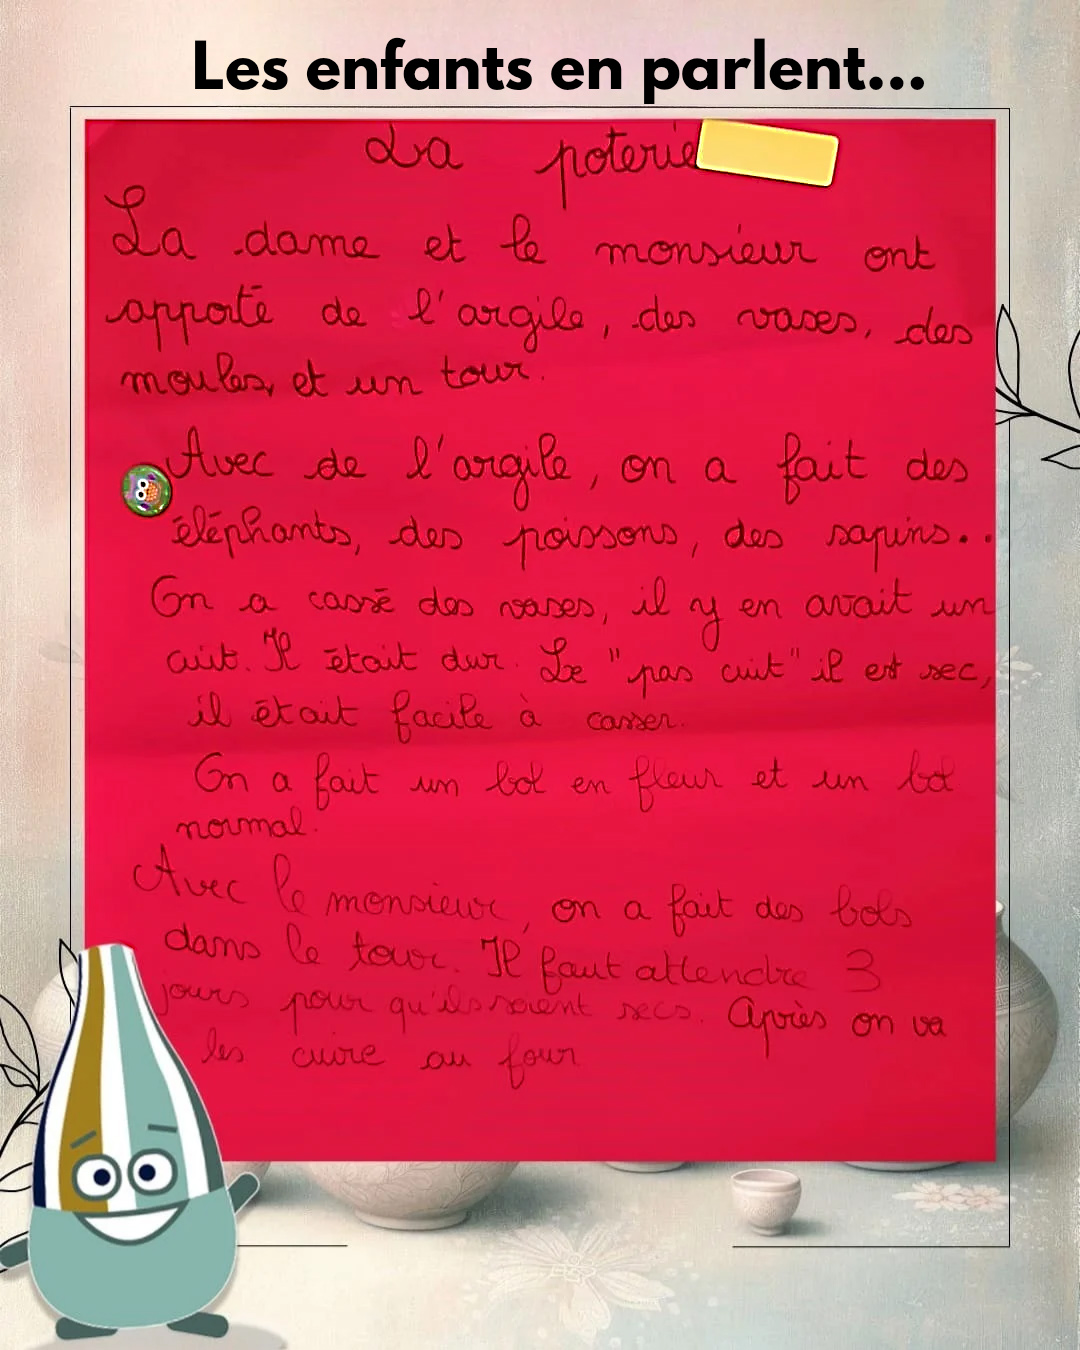 Les enfants en parlent...
La poterie
La dame et le monsieur ont
apporté de l'argile, des vases, des
moules, et un tour.
Avec de l'argile, on a fait des
éléphants, des poissons, des sapins..
On a cassé des vases, il y en avait un
cuit. Il était dur. Le "pas cuit" il est sec,
il était facile à casser.
On a fait un bol en fleur et un bol
normal.
Avec le monsieur, on a fait des bols
dans le tour. Il faut attendre 3
jours pour qu'ils soient secs. Après on va
les cuire au four